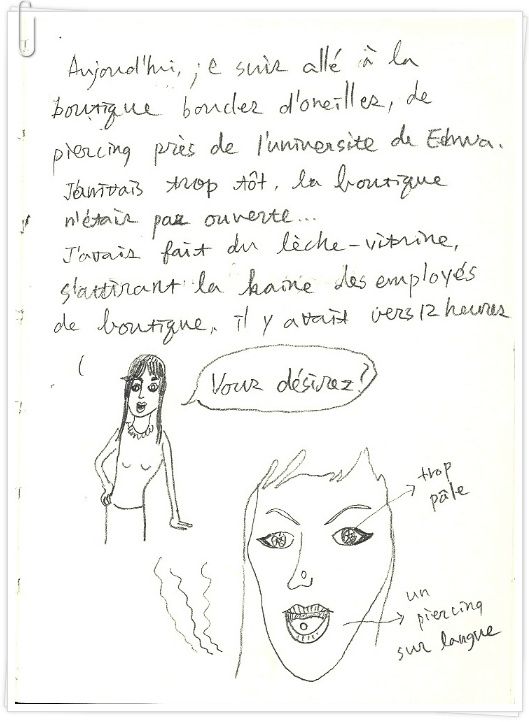 Aujourd'hui, je suis allé à la
boutique boucles d'oreilles, de
piercing près de l'universite de Edwa.
J'arrivais trop tôt, la boutique
n'était pas ouverte...
J'avais fait du lèche-vitrine,
s'attirant la haine des employés
de boutique, il y avait vers 12 heures
Vous désirez?
trop
pâle
un
piercing
sur langue